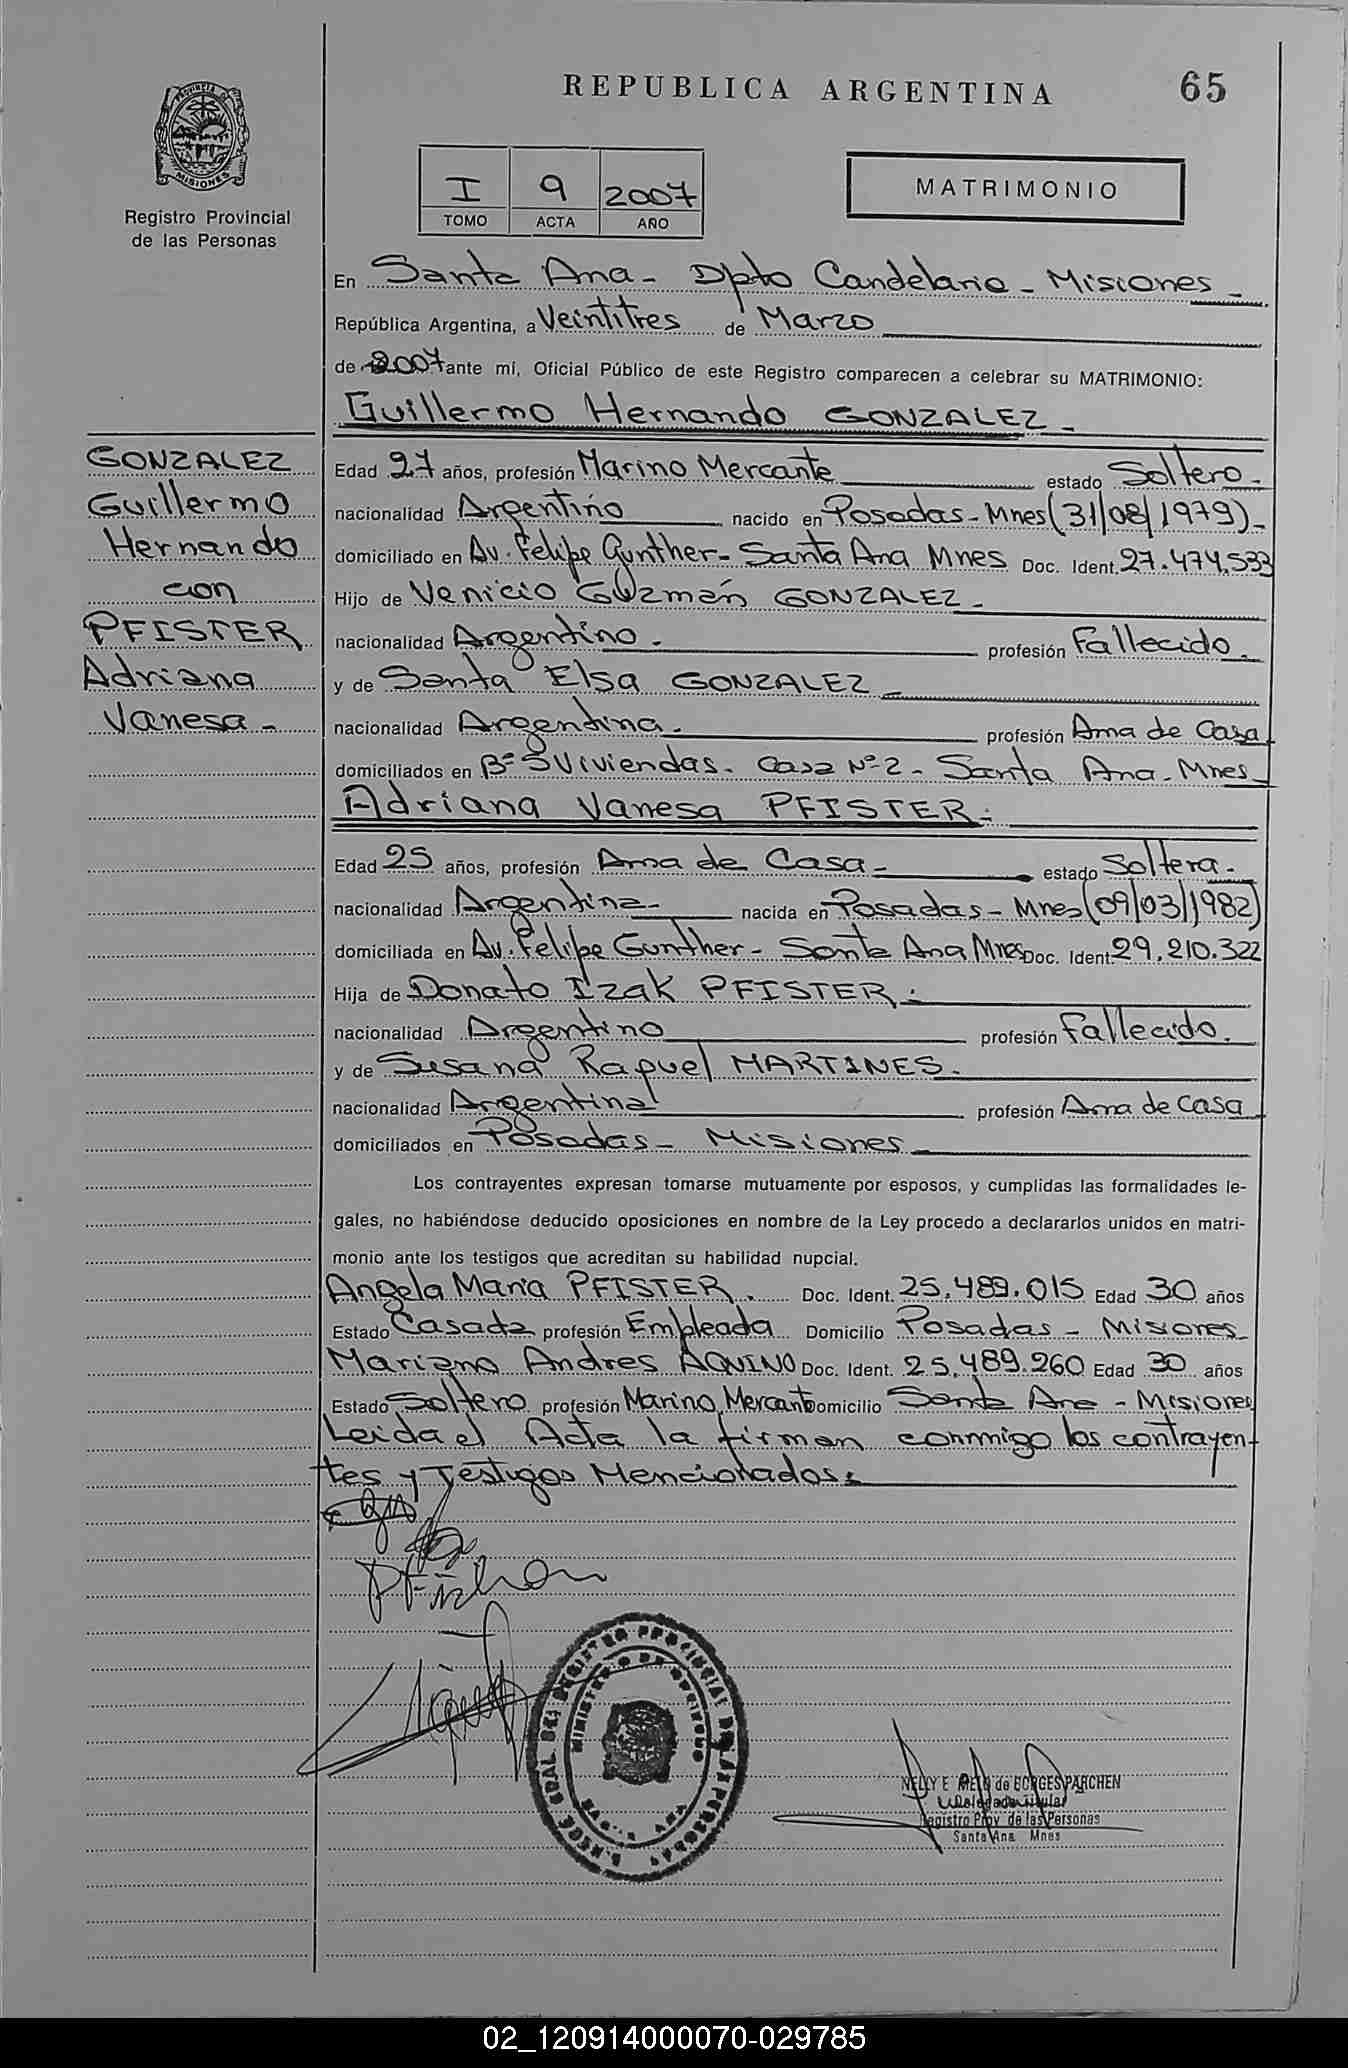 REPUBLICA ARGENTINA
65
PROVINCIA DE
MISIONES
Registro Provincial
de las Personas
I 9 2007
TOMO ACTA AÑO
MATRIMONIO
En Santa Ana - Dpto Candelaria - Misiones -
República Argentina, a Veintitres de Marzo
de 2007 ante mí, Oficial Público de este Registro comparecen a celebrar su MATRIMONIO:
Guillermo Hernando GONZALEZ -
GONZALEZ
Guillermo
Hernando
con
PFISTER
Adriana
Vanesa -
Edad 27 años, profesión Marino Mercante estado Soltero -
nacionalidad Argentino nacido en Posadas - Mnes (31/08/1979) -
domiciliado en Av. Felipe Gunther - Santa Ana Mnes Doc. Ident. 27.474.533
Hijo de Venicio Guzmán GONZALEZ -
nacionalidad Argentino - profesión Fallecido -
y de Santa Elsa GONZALEZ -
nacionalidad Argentina - profesión Ama de Casa
domiciliados en Bº 5 Viviendas - Casa Nº 2 - Santa Ana - Mnes -
Adriana Vanesa PFISTER -
Edad 25 años, profesión Ama de Casa - estado Soltera -
nacionalidad Argentina - nacida en Posadas - Mnes (09/03/1982)
domiciliada en Av. Felipe Gunther - Santa Ana Mnes Doc. Ident. 29.210.322
Hija de Donato Izak PFISTER -
nacionalidad Argentino profesión Fallecido -
y de Susana Raquel MARTINES -
nacionalidad Argentina profesión Ama de Casa
domiciliados en Posadas - Misiones
Los contrayentes expresan tomarse mutuamente por esposos, y cumplidas las formalidades le-
gales, no habiéndose deducido oposiciones en nombre de la Ley procedo a declararlos unidos en matri-
monio ante los testigos que acreditan su habilidad nupcial.
Angela Maria PFISTER. Doc. Ident. 25.489.015 Edad 30 años
Estado Casada profesión Empleada Domicilio Posadas - Misiones
Mariano Andres AQUINO Doc. Ident. 25.489.260 Edad 30 años
Estado Soltero profesión Marino Mercant Domicilio Santa Ana - Misiones
Leida el Acta la firman conmigo los contrayen-
tes y Testigos Mencionados
NELLY E. MELO de BORGES PARCHEN
Delegada Titular
Registro Prov. de las Personas
Santa Ana Mnes
02_120914000070-029785